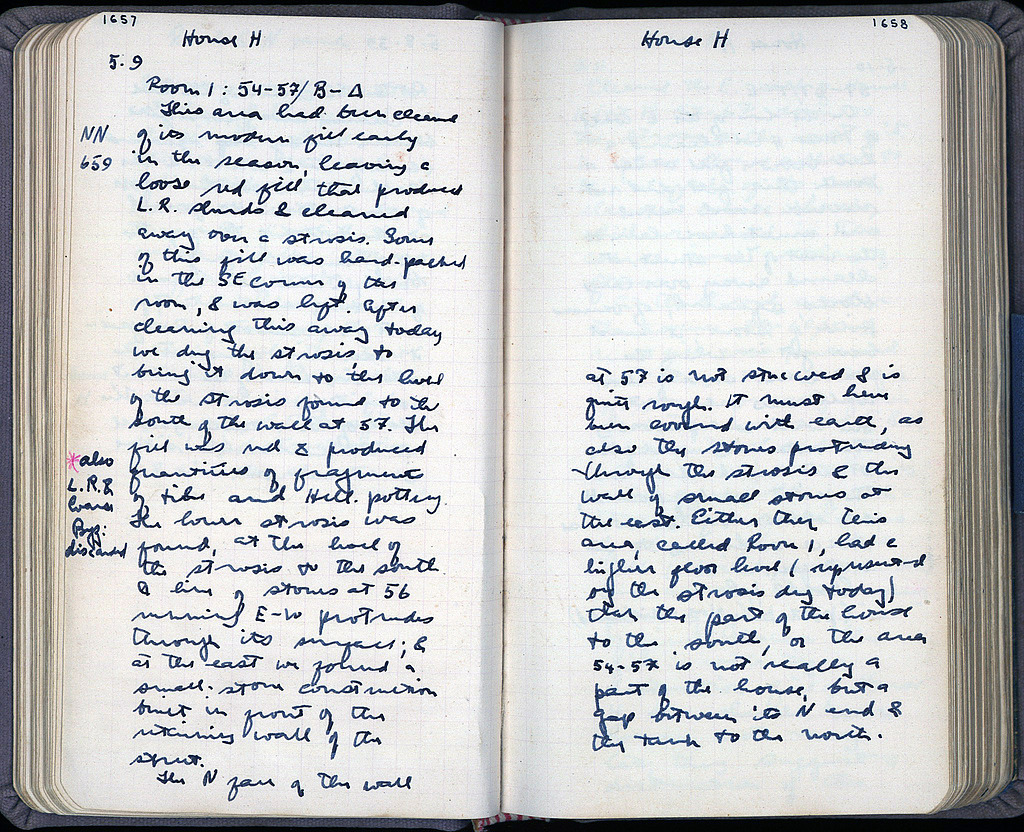 1657
House H
5.9
Room 1: 54-57/B-Δ
This area had been cleared
NN
659
of its modern fill early
in the season, leaving a
loose red fill that produced
L.R. sherds & cleaned
away over a strosis. Some
of this fill was hard-packed
in the SE corner of the
room, & was left. After
cleaning this away today
we dug the strosis to
bring it down to the level
of the strosis found to the
south of the wall at 57. The
fill was red & produced
*also
L.R. &
Coarse
Byz:
discarded
quantities of fragment
of tiles and Hell. pottery.
The lower strosis was
found, at the level of
the strosis to the south.
A line of stones at 56
running E-W protrudes
through its surface; &
at the east we found a
small stone construction
built in front of the
retaining wall of the
street.
The N face of the wall
1658
House H
at 57 is not stuccoed & is
quite rough. It must have
been covered with earth, as
also the stones protruding
through the strosis & the
wall of small stones at
the east. Either then this
area, called Room 1, had a
higher floor level (represented
by the strosis dug today)
than the part of the house
to the south, or the area
54-57 is not really a
part of the house, but a
gap between its N end &
the tank to the north.